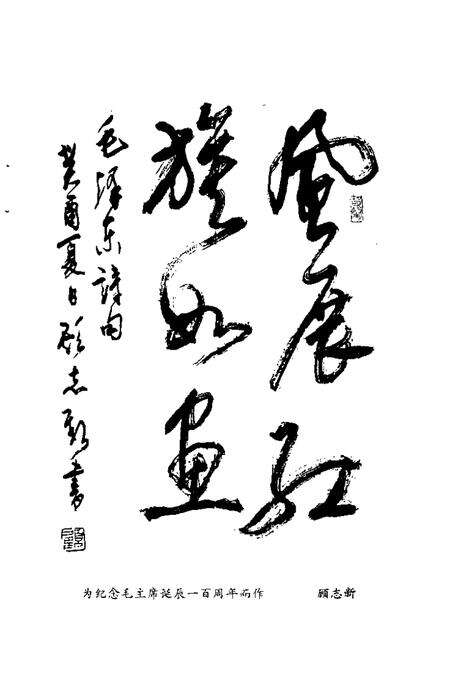 風展红
旗如画
毛泽东詩句
癸酉夏日顾志新書
为纪念毛主席诞辰一百周年而作 顾志新